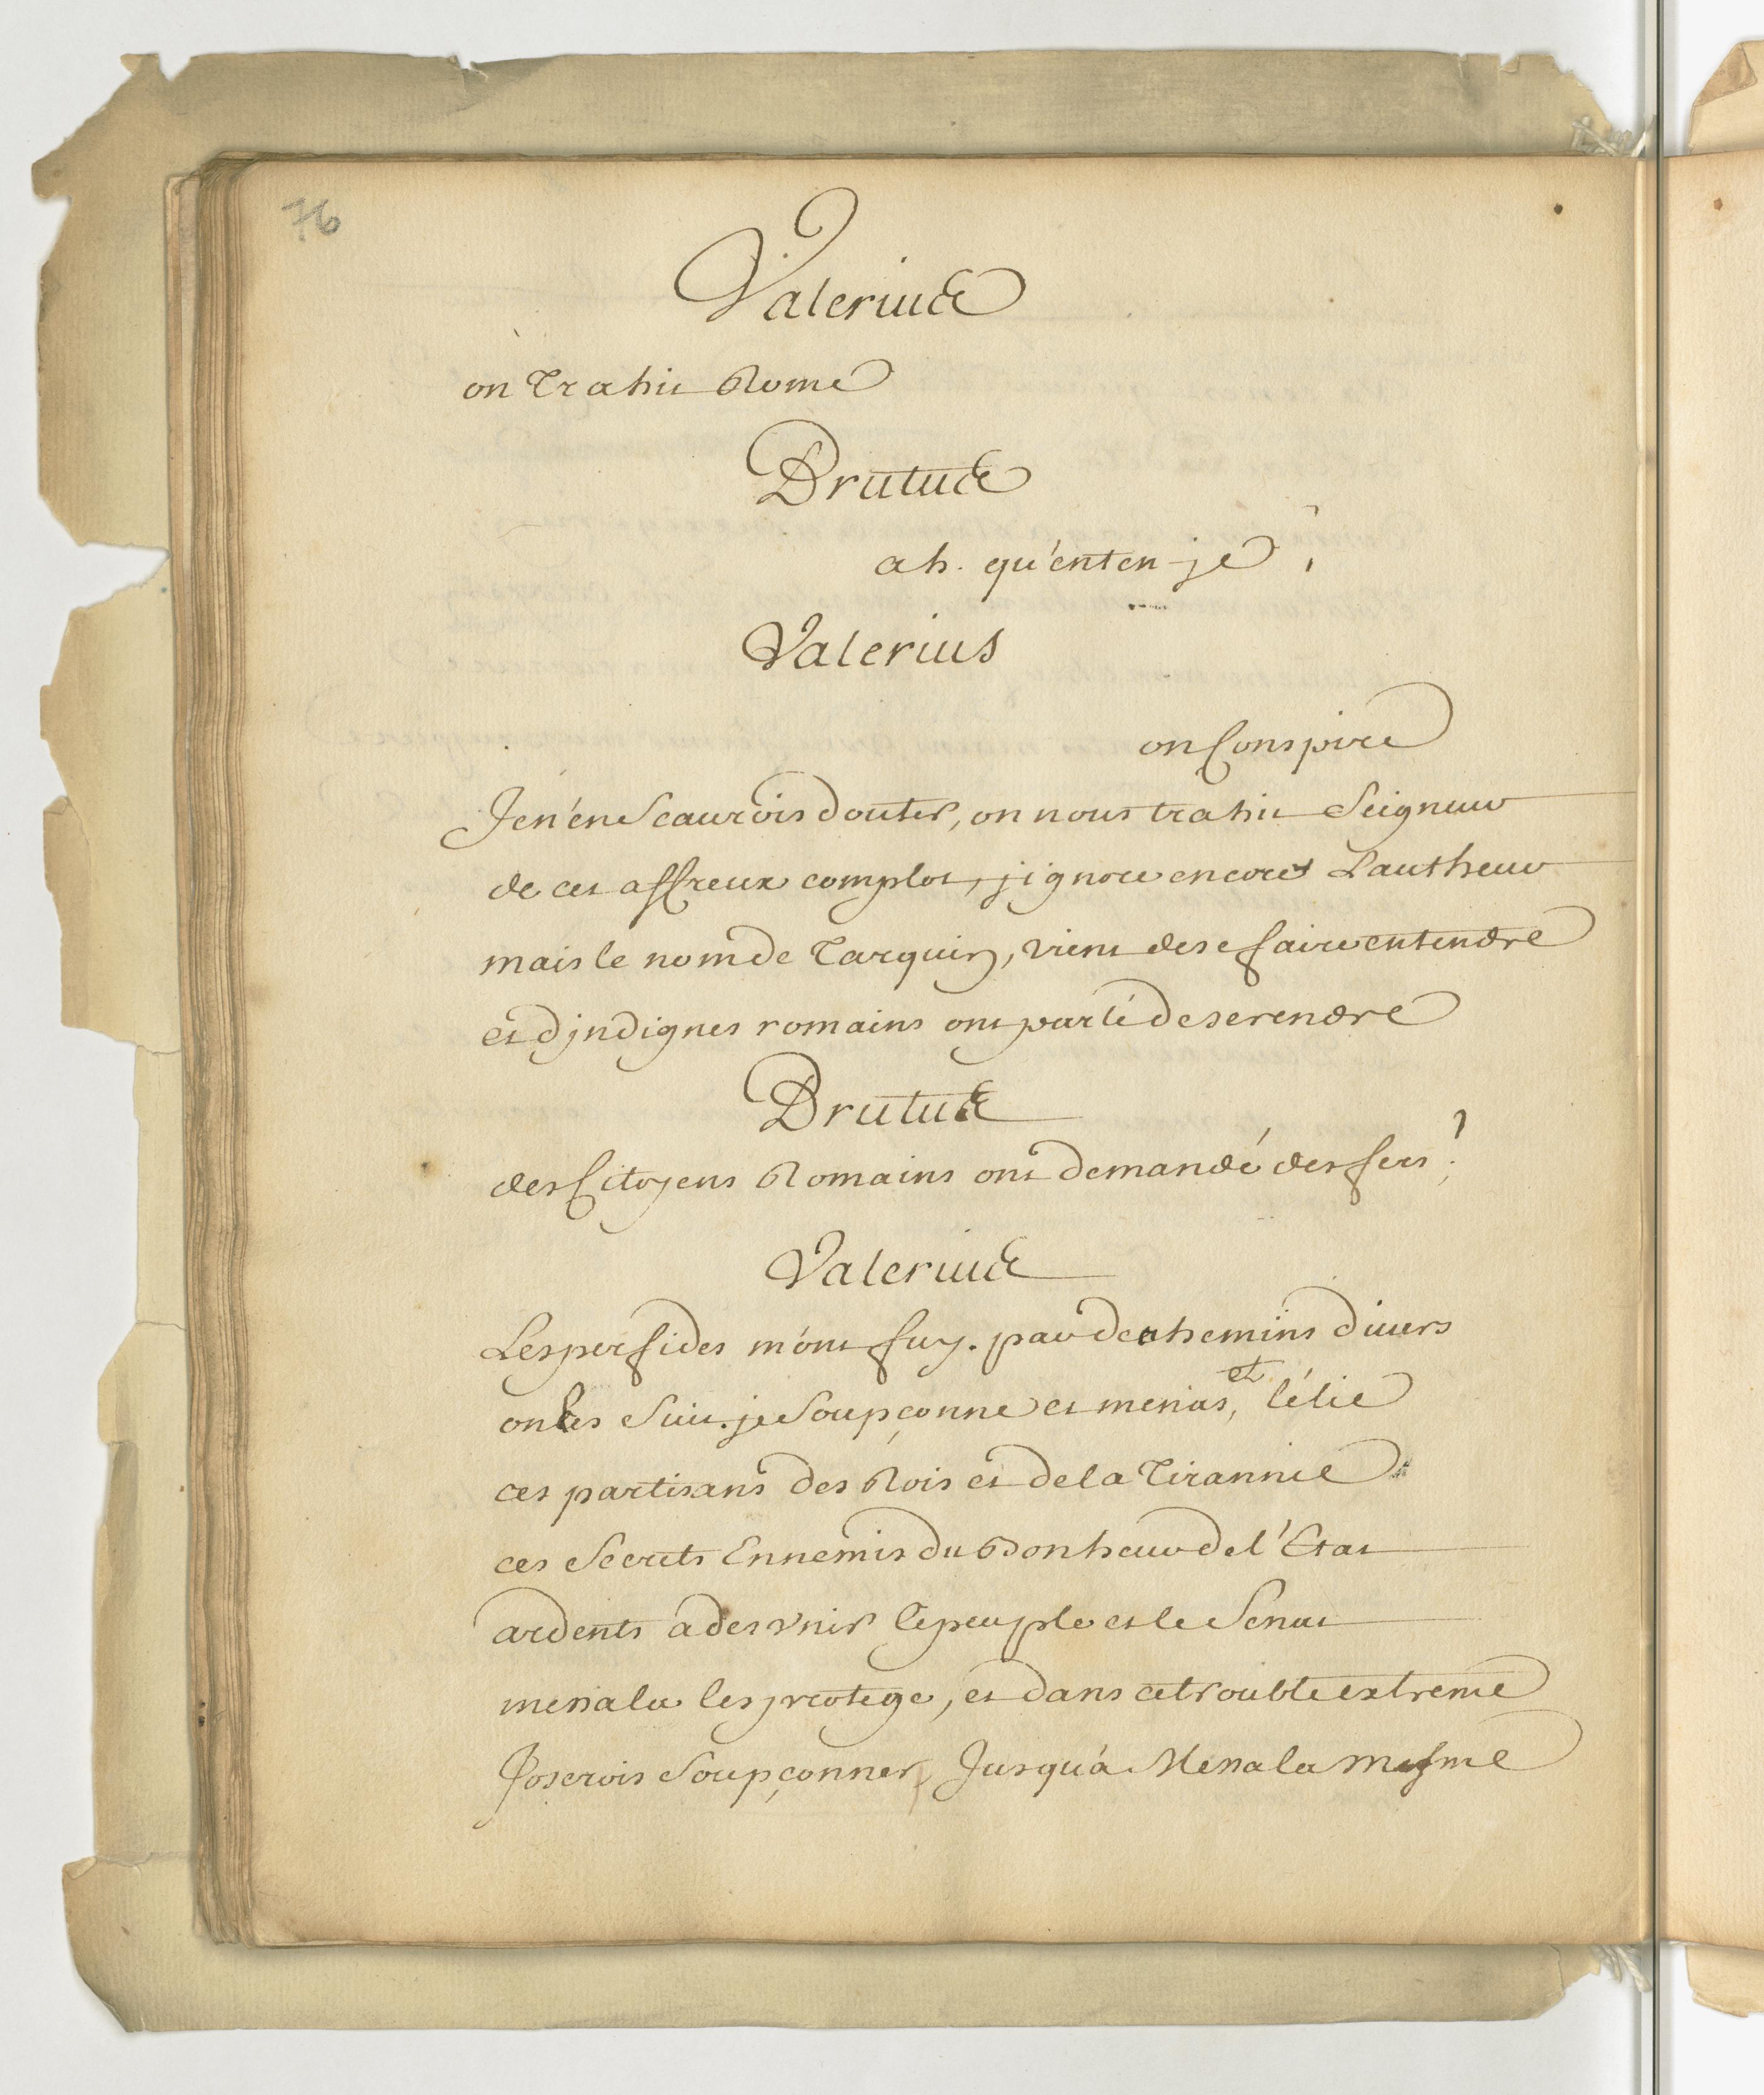 76
Valerius
on Trahit Rome
Brutus
ah. qu'enten-je ?
Valerius
on Conspire
Je n'en Scaurois douter, on nous trahit Seigneur
de cet affreux complot, j ignore encore Lautheur
mais le nom de Tarquin, vient de se faire entendre
et d jndignes romains ont parlé de se rendre
Brutus
des Citoyens Romains ont demandé des fers ?
Valerius
Les perfides m'ont fuy. par de chemins divers
on les Suit. je Soupçonne et menas, et lélie
ces partisans des Rois et de la Tirannie
ces Secrets Ennemis du Bonheur de l'Etat
ardents a desunir le peuple et le Senat
messala les protege, et dans ce trouble extreme
Joserois Soupçonner Jusqu'a Messala mesme